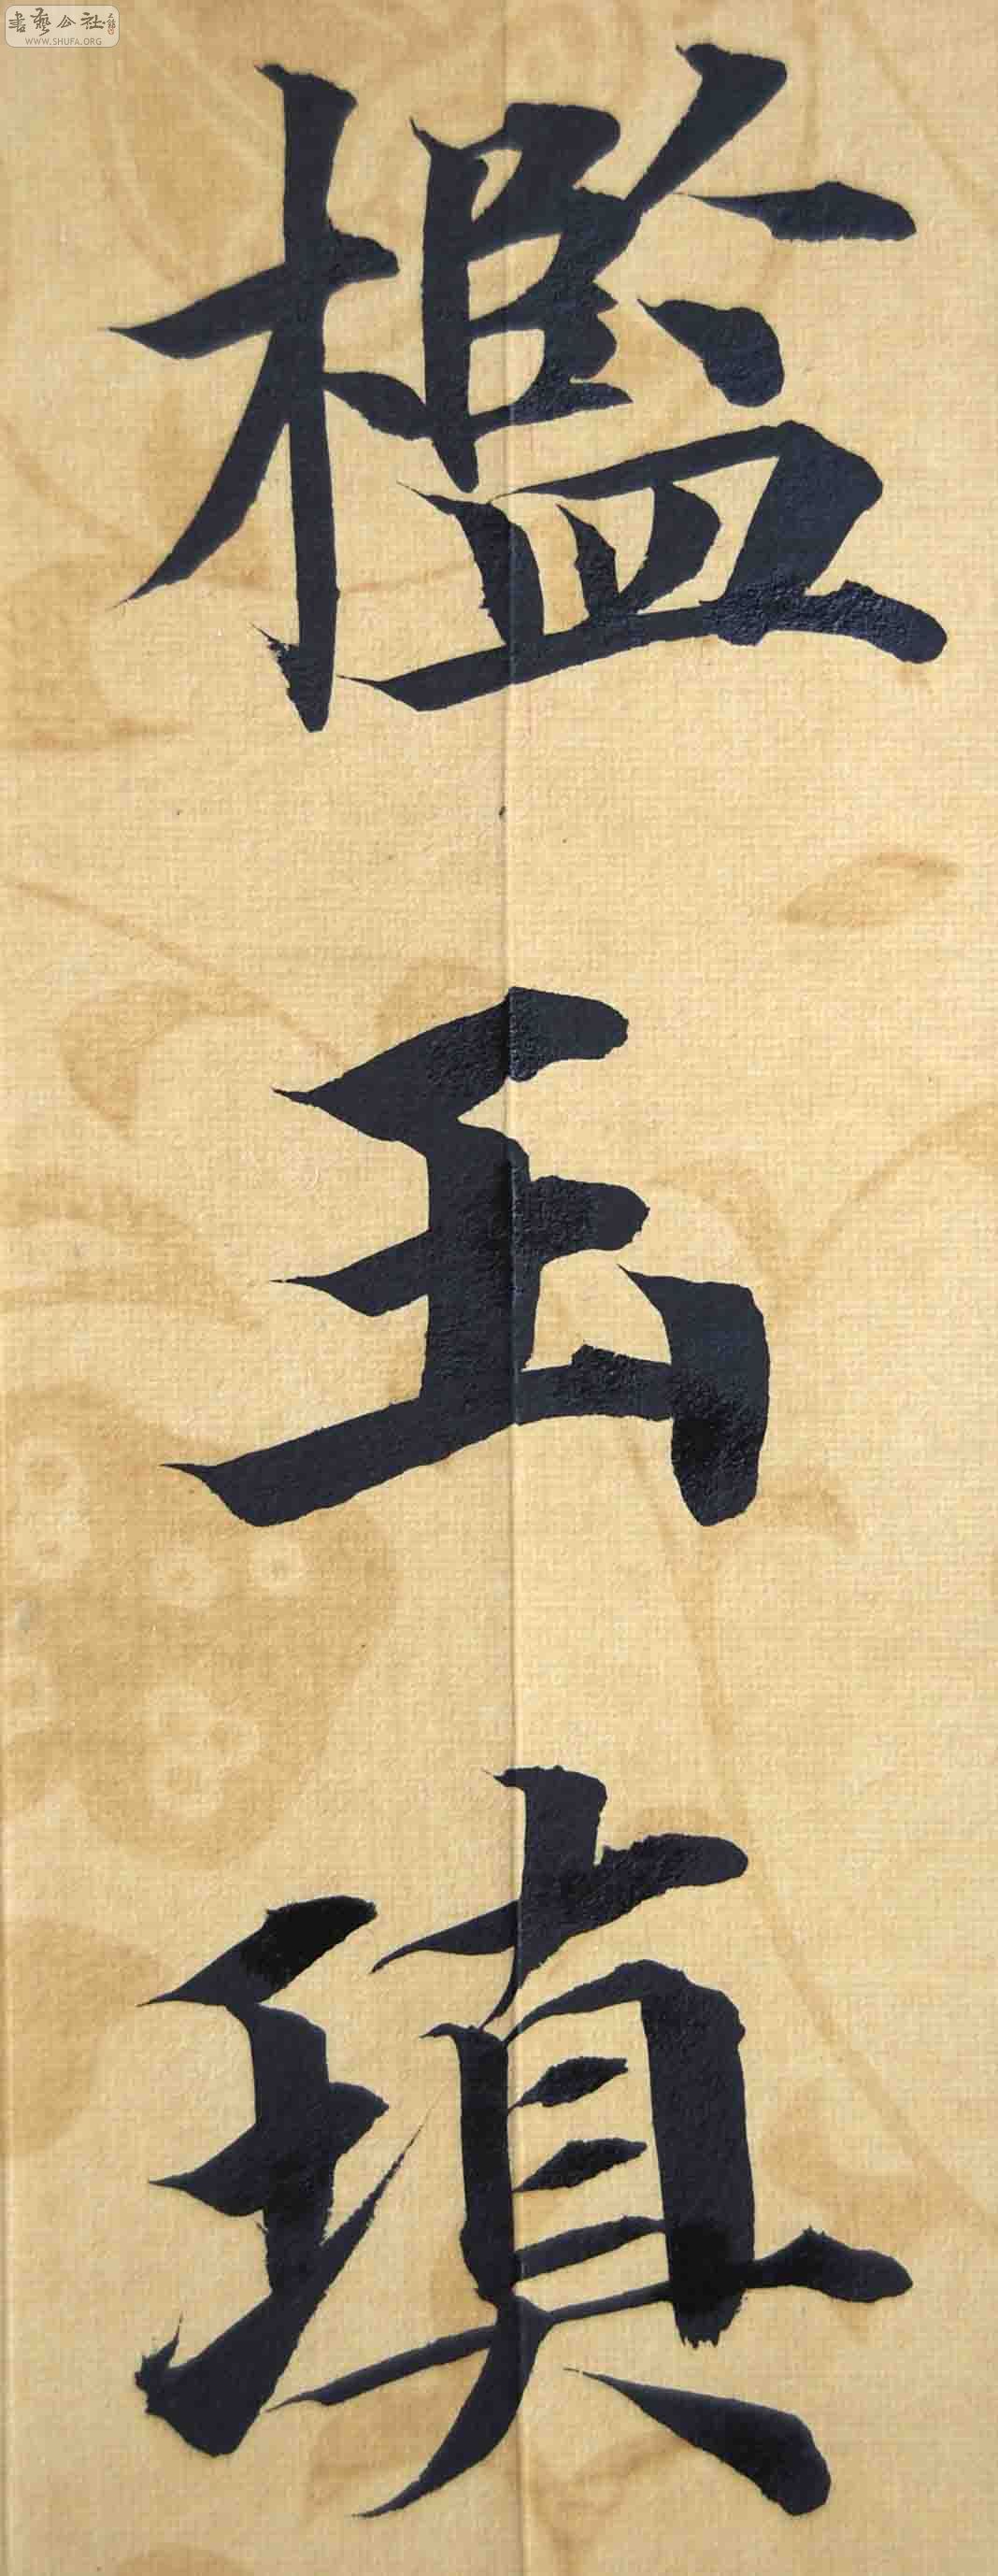 書藝公社
WWW.SHUFA.ORG
檻
玉
瑱